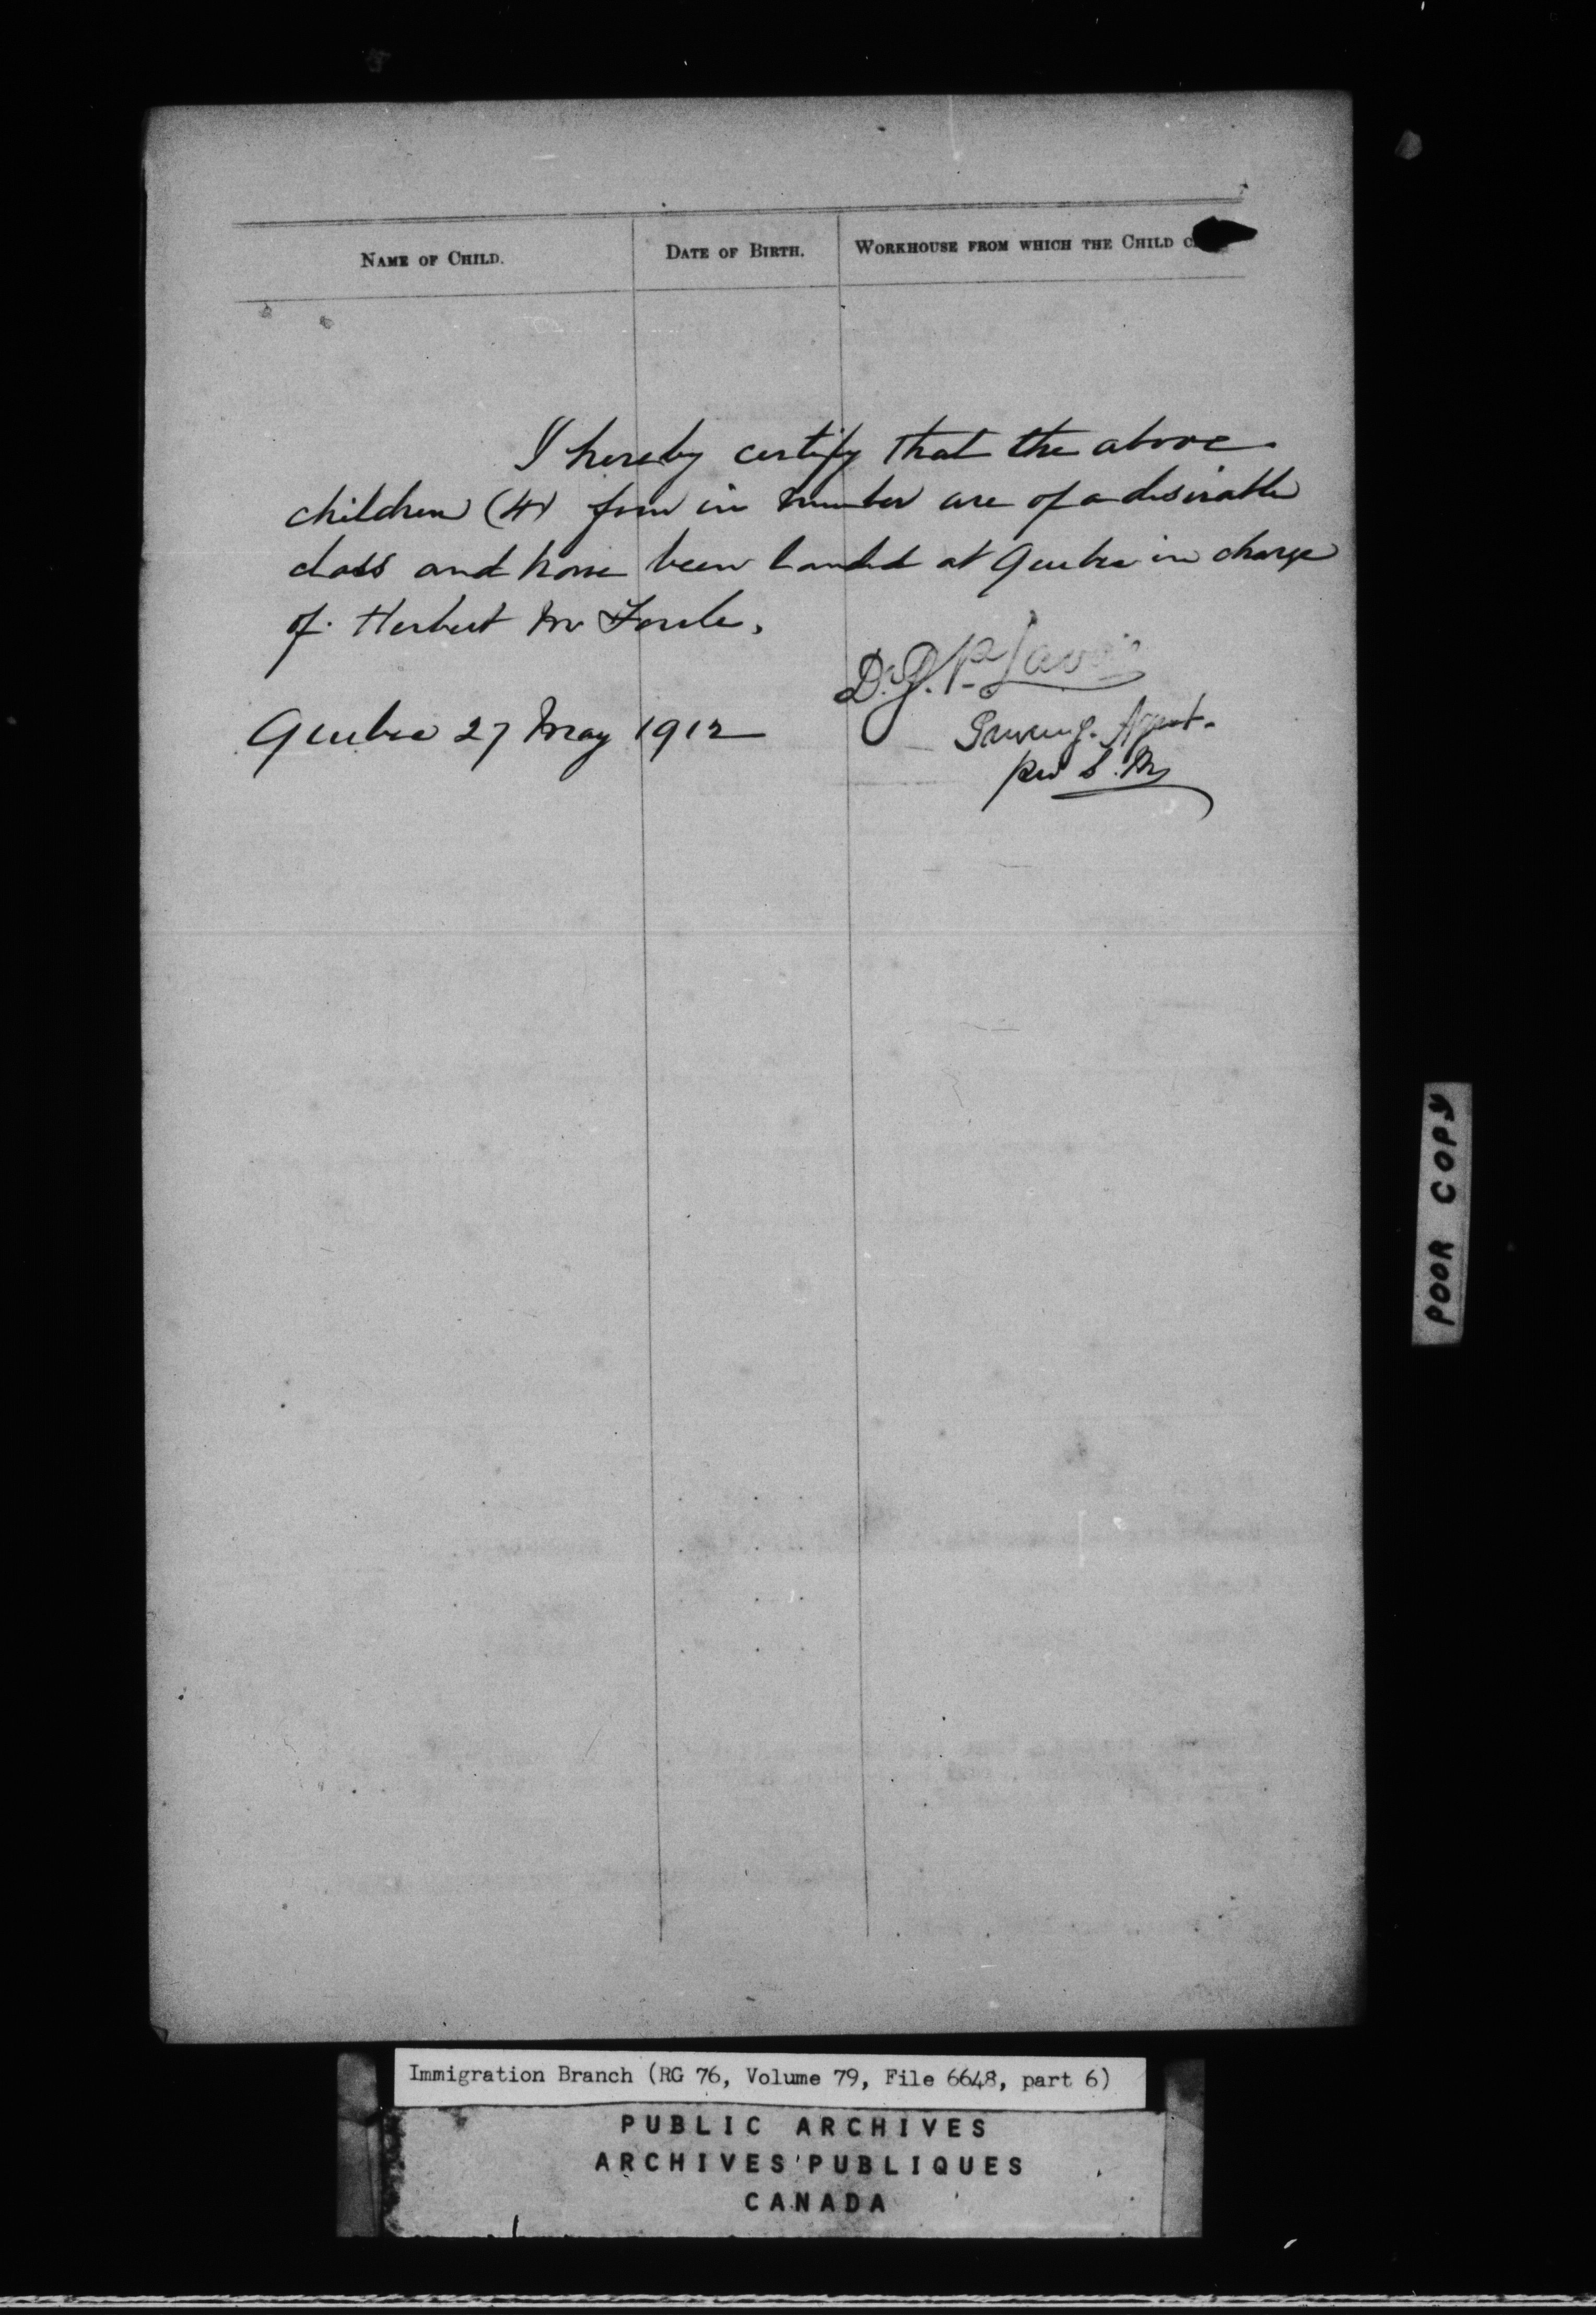 NAME OF CHILD. DATE OF BIRTH. WORKHOUSE FROM WHICH THE CHILD
I hereby certify that the above
children (4) four in number are of a desirable
class and have been landed at Quebec in charge
of Herbert
Dr. J. P. Lavoie
Quebec 27 May 1912
Agent.
per S. M.
POOR COPY
Immigration Branch (RG 76, Volume 79, File 6648, part 6)
PUBLIC ARCHIVES
ARCHIVES PUBLIQUES
CANADA